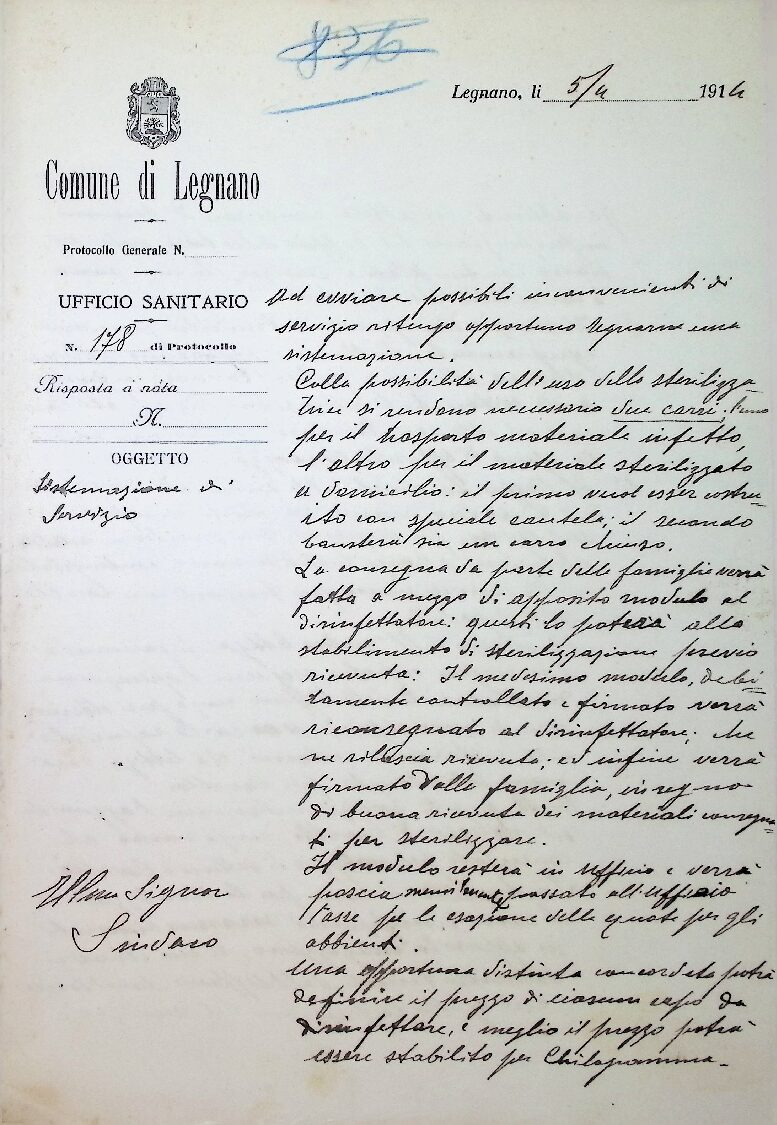 836
Legnano, li 5/4 1914
Comune di Legnano
Protocollo Generale N.
UFFICIO SANITARIO
N. 178 di Protocollo
Risposta a nota
N.
OGGETTO
Sistemazione di
Servizio
Ad ovviare possibili inconvenienti di
servizio ritengo opportuno una
sistemazione.
Colla possibilità dell'uso della sterilizza
trice si rendono necessario due carri; l'uno
per il trasporto materiale infetto,
l'altro per il materiale sterilizzato
a domicilio: il primo vuol esser costru-
ito con speciale cautela; il secondo
basterà sia un carro chiuso.
La consegna da parte delle famiglie verrà
fatta a mezzo di apposito modulo al
disinfettatore: questi lo porterà allo
stabilimento di sterilizzazione previo
ricevuta: Il medesimo modulo, debi-
tamente controllato e firmato verrà
riconsegnato al disinfettatore; che
ne rilascia ricevuta; ed infine verrà
firmato dalla famiglia, in segno
di buona ricevuta dei materiali consegna-
ti per sterilizzare.
Il modulo resterà in Ufficio e verrà
poscia mensilmente passato all'Ufficio
Tasse pe le esazione delle quote per gli
abbienti.
Una opportuna distinta concordata potrà
definire il prezzo di ciascun capo da
disinfettare, e meglio il prezzo potrà
essere stabilito per Chilogramma.
Ill.mo Signor
Sindaco